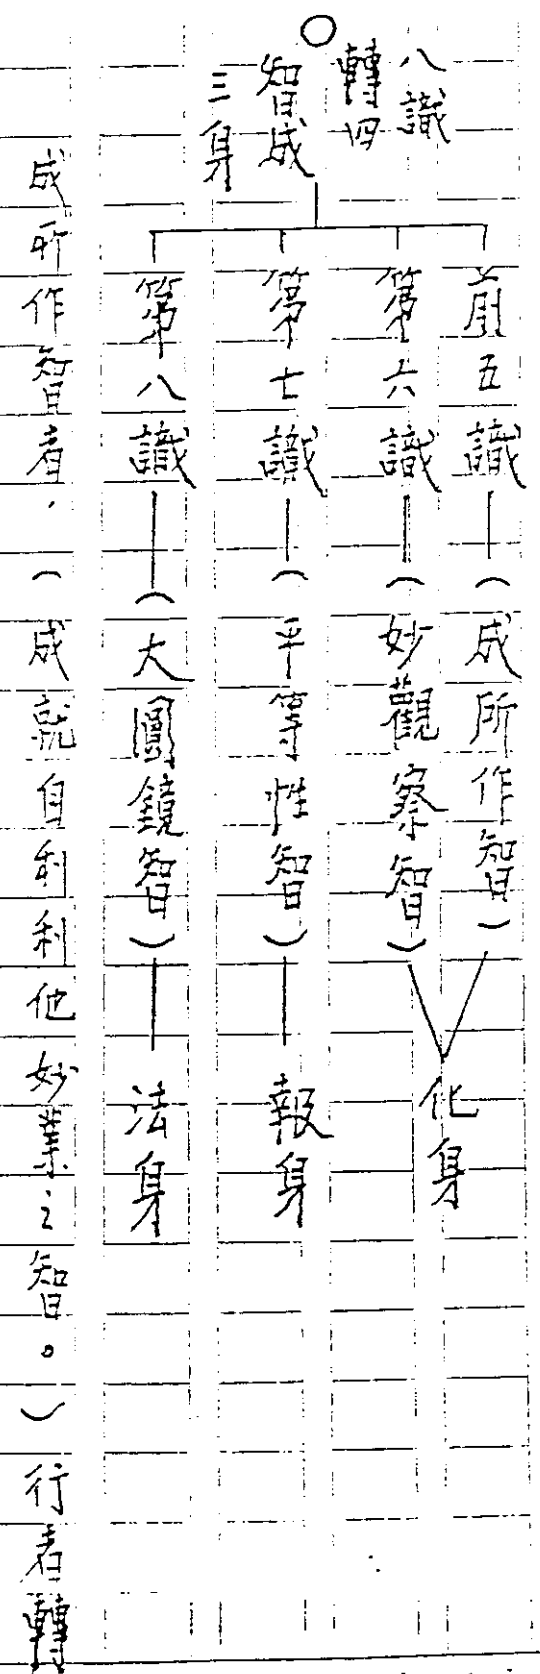 ○
八識
轉四
智成
三身
前五識—(成所作智)
第六識—(妙觀察智)
化身
第七識—(平等性智)—報身
第八識—(大圓鏡智)—法身
成所作智者,(成就自利利他妙業之智。)行者轉